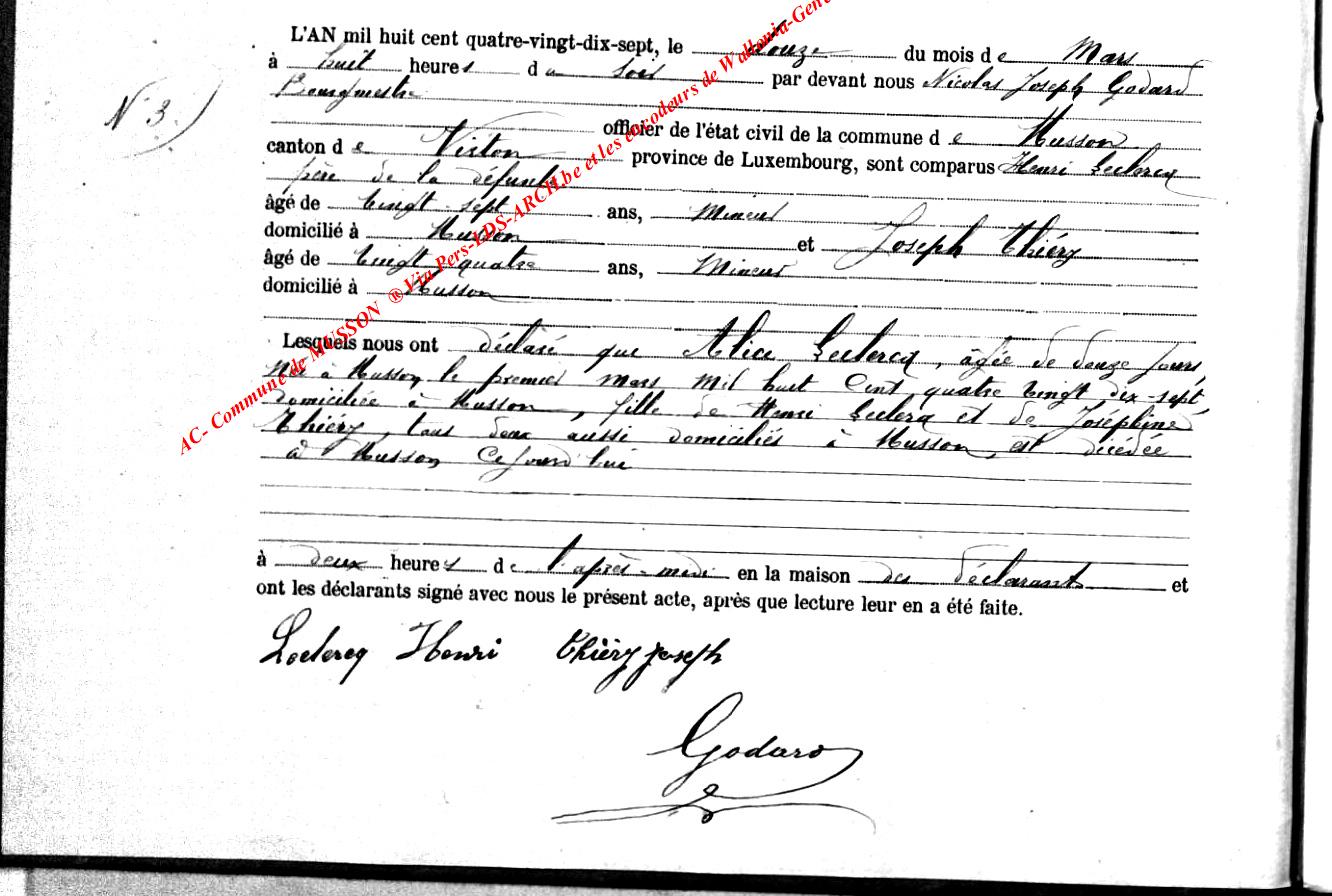 L'AN mil huit cent quatre-vingt-dix-sept, le douze du mois de Mars
à huit heures du soir par devant nous Nicolas Joseph Godard
Bourgmestre
N° 3.
officier de l'état civil de la commune de Musson
canton de Virton province de Luxembourg, sont comparus Henri Leclercq
père de la défunte
âgé de vingt-sept ans, Mineur
domicilié à Musson et Joseph Thiéry
âgé de vingt-quatre ans, Mineur
domicilié à Musson
Lesquels nous ont déclaré que Alice Leclercq, âgée de douze jours,
née à Musson le premier mars mil huit cent quatre vingt dix-sept,
domiciliée à Musson, fille de Henri Leclercq et de Joséphine
Thiéry, tous deux aussi domiciliés à Musson, est décédée
à Musson cejourd'hui
à deux heures de l'après-midi en la maison des déclarants et
ont les déclarants signé avec nous le présent acte, après que lecture leur en a été faite.
Leclercq Henri Thiéry Joseph
Godard
AC- Commune de MUSSON ® Via Pers-EDS-ARCH.be et les encodeurs de Wallonia-Gene